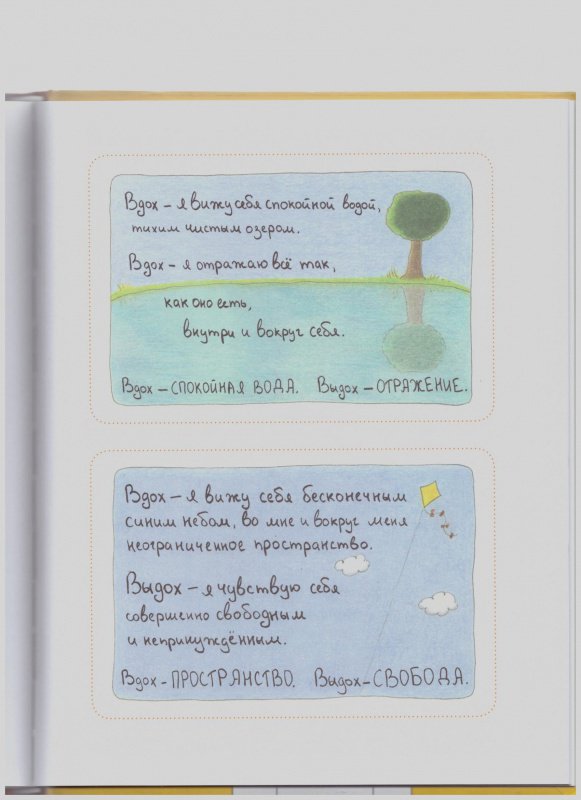 Вдох – я вижу себя спокойной водой,
тихим чистым озером.
Вдох – я отражаю всё так,
как оно есть,
внутри и вокруг себя.
Вдох – СПОКОЙНАЯ ВОДА. Выдох – ОТРАЖЕНИЕ.
Вдох – я вижу себя бесконечным
синим небом, во мне и вокруг меня
неограниченное пространство.
Выдох – я чувствую себя
совершенно свободным
и непринуждённым.
Вдох - ПРОСТРАНСТВО. Выдох – СВОБОДА.